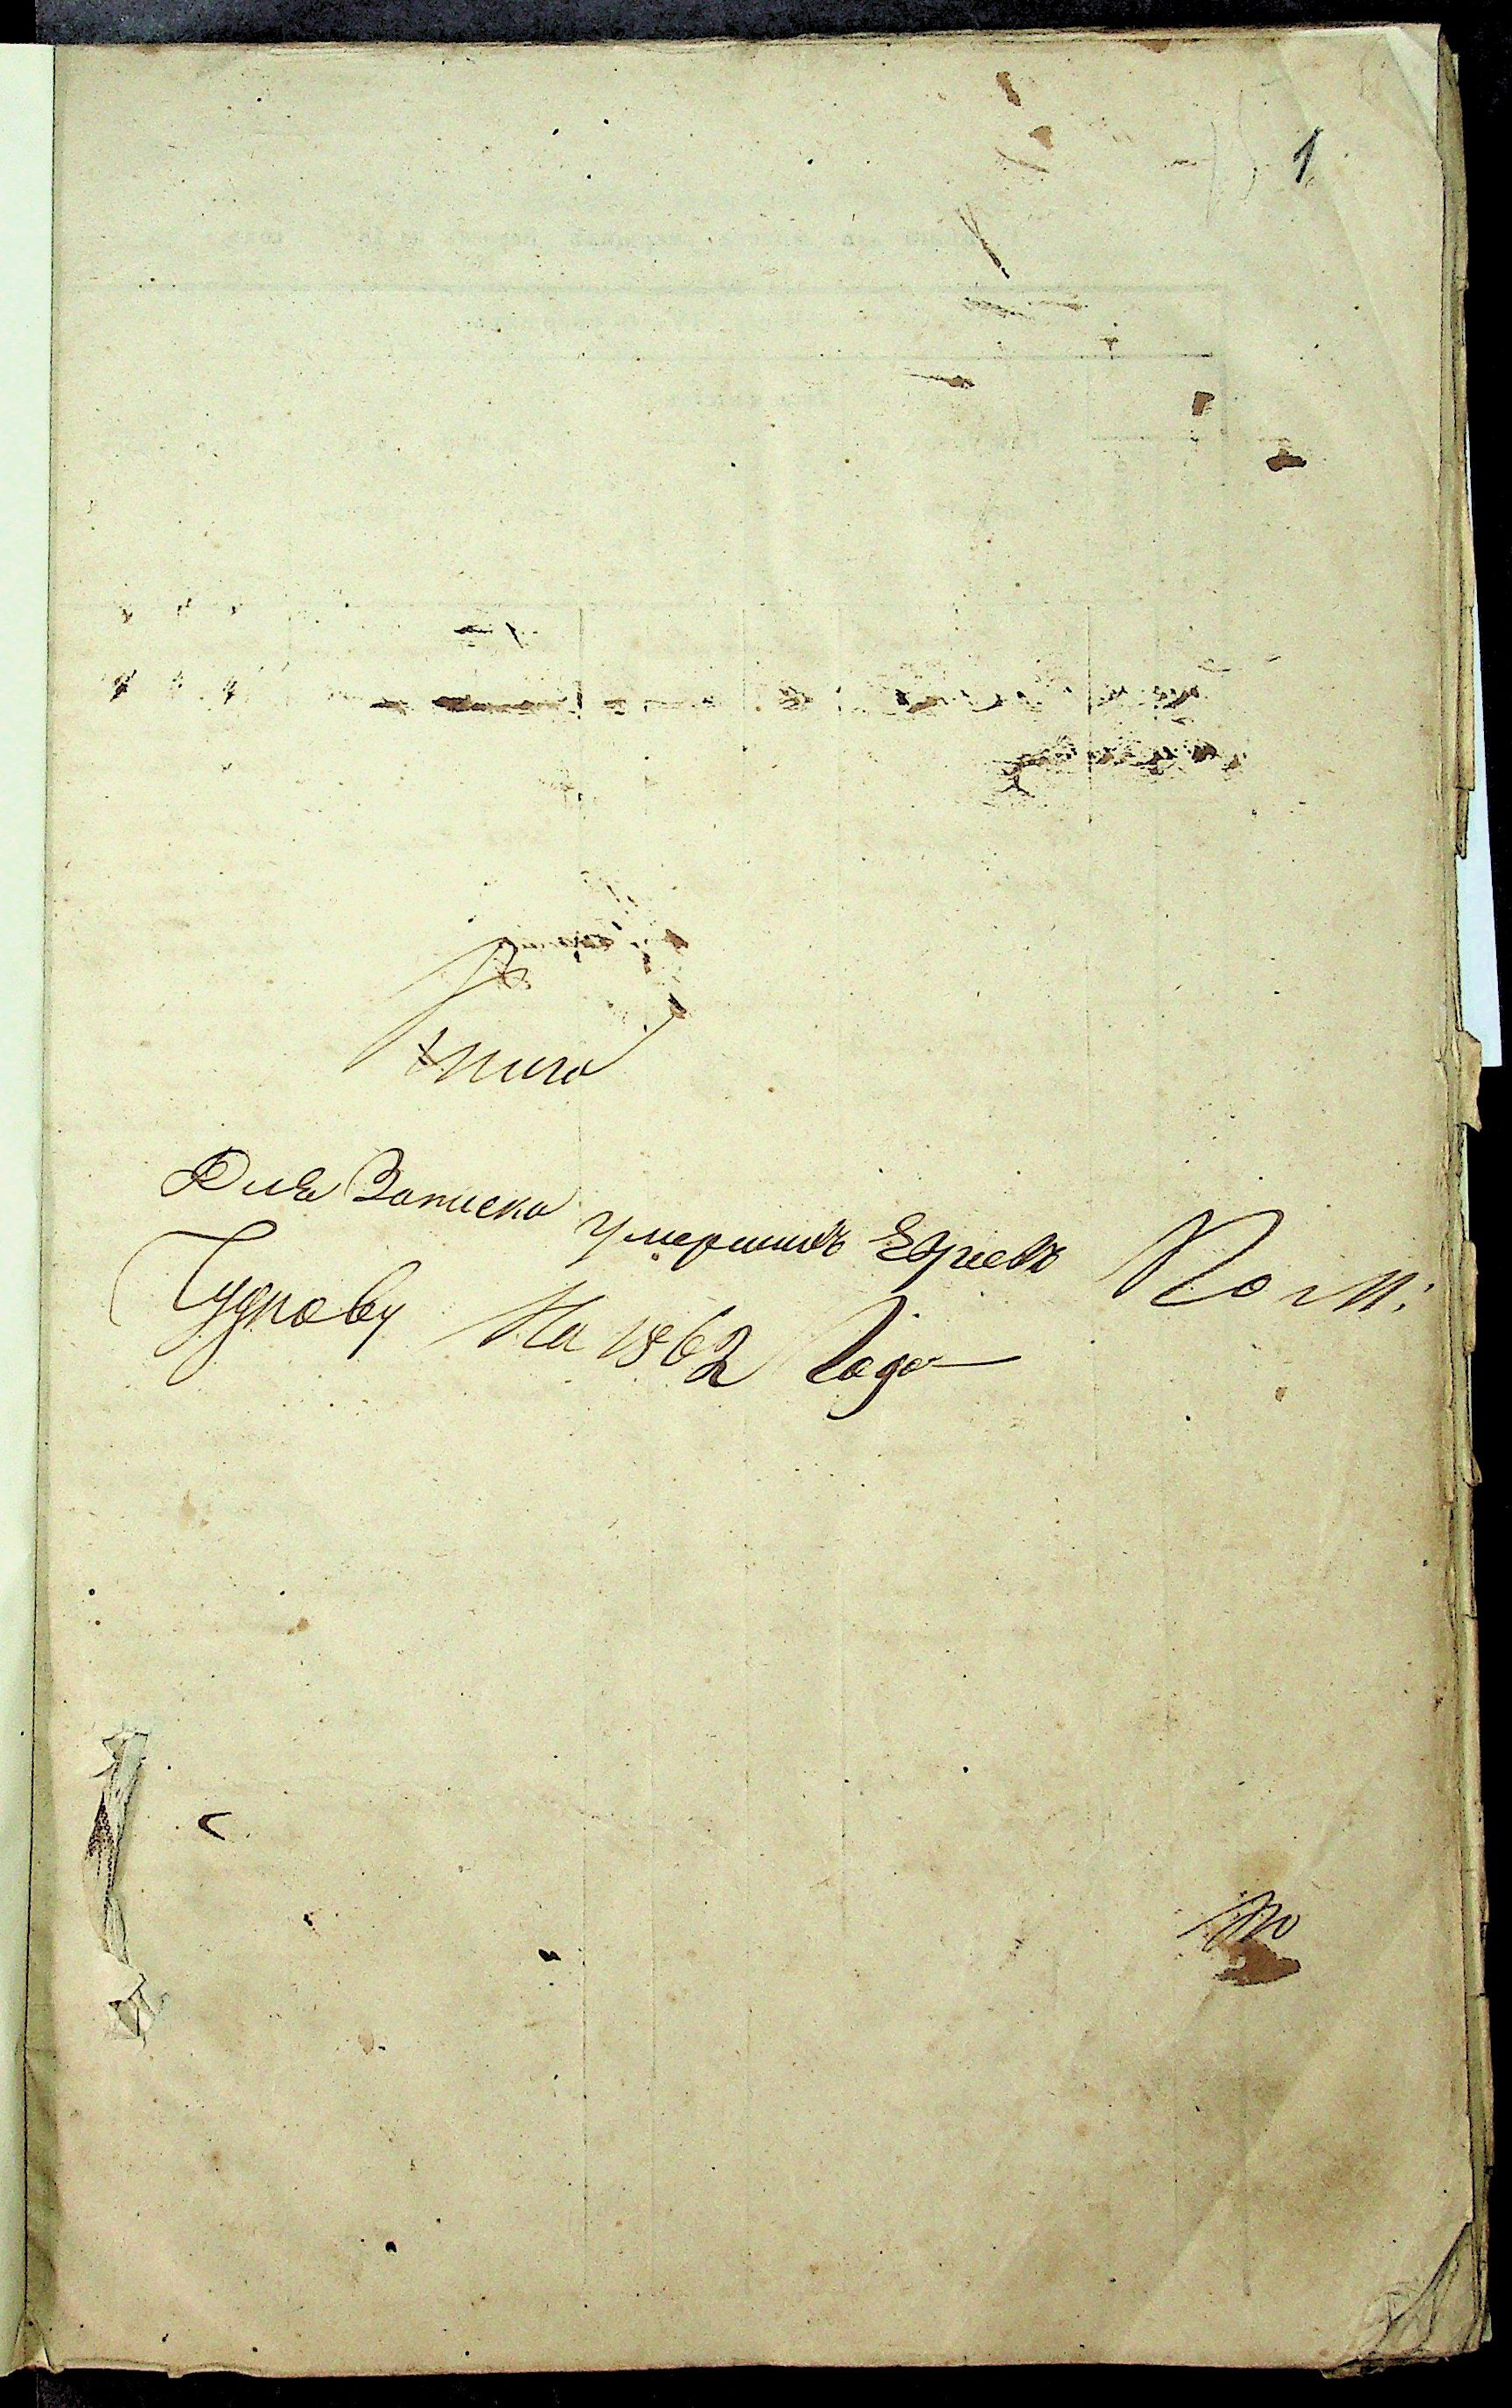 1
Книга
Для Записка умершихъ Евреевъ По м:
Чуднову На 1862 Года